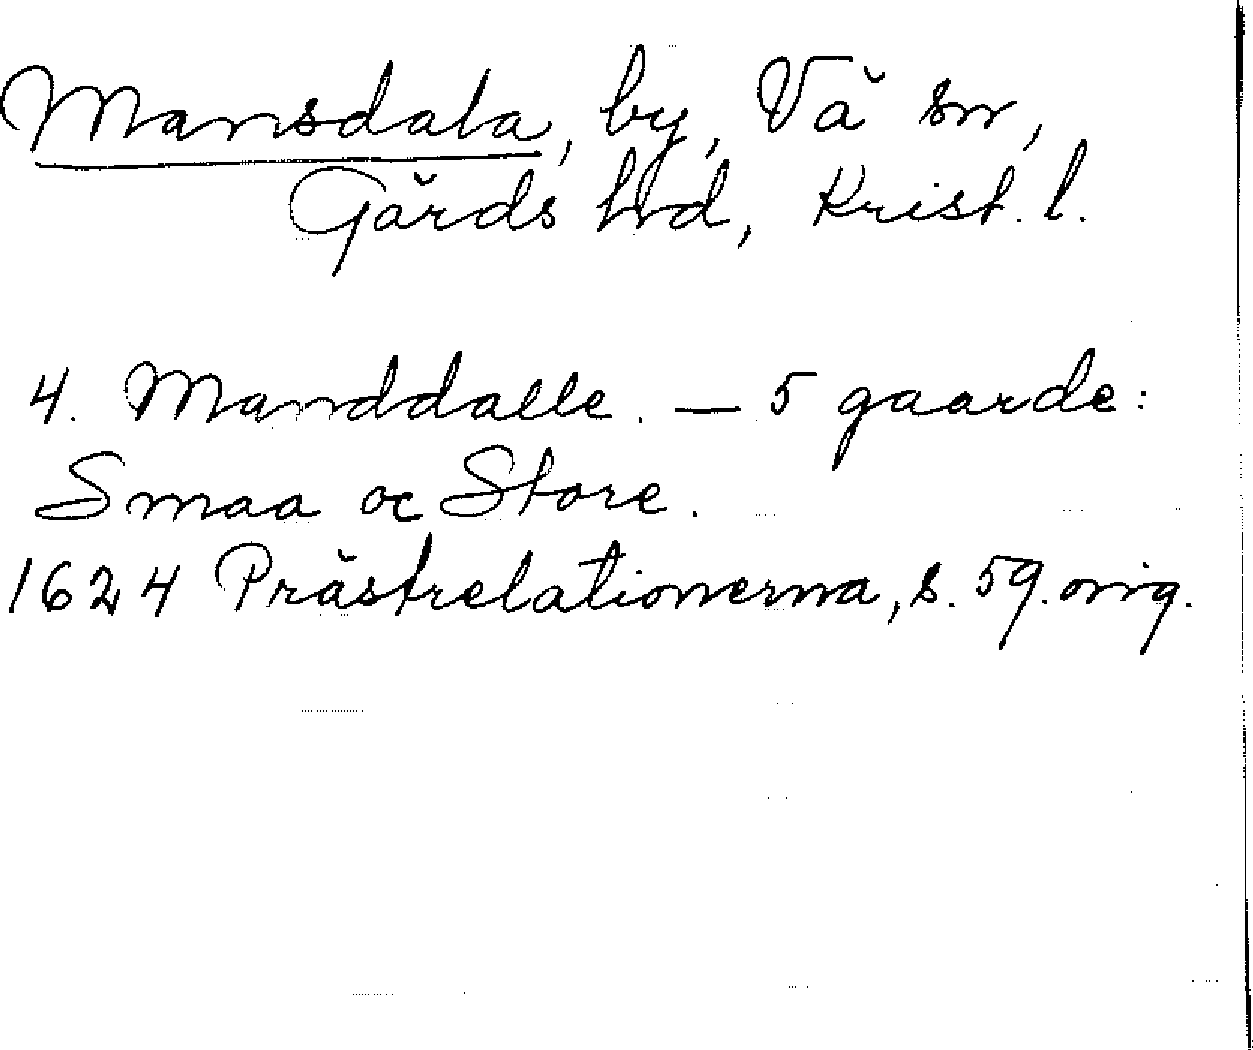 Mansdala, by, Vä sn,
Gärds hrd, Krist. l.
4. Manddalle. — 5 gaarde:
Smaa oc Store.
1624 Prästrelationerna, s. 59. orig.